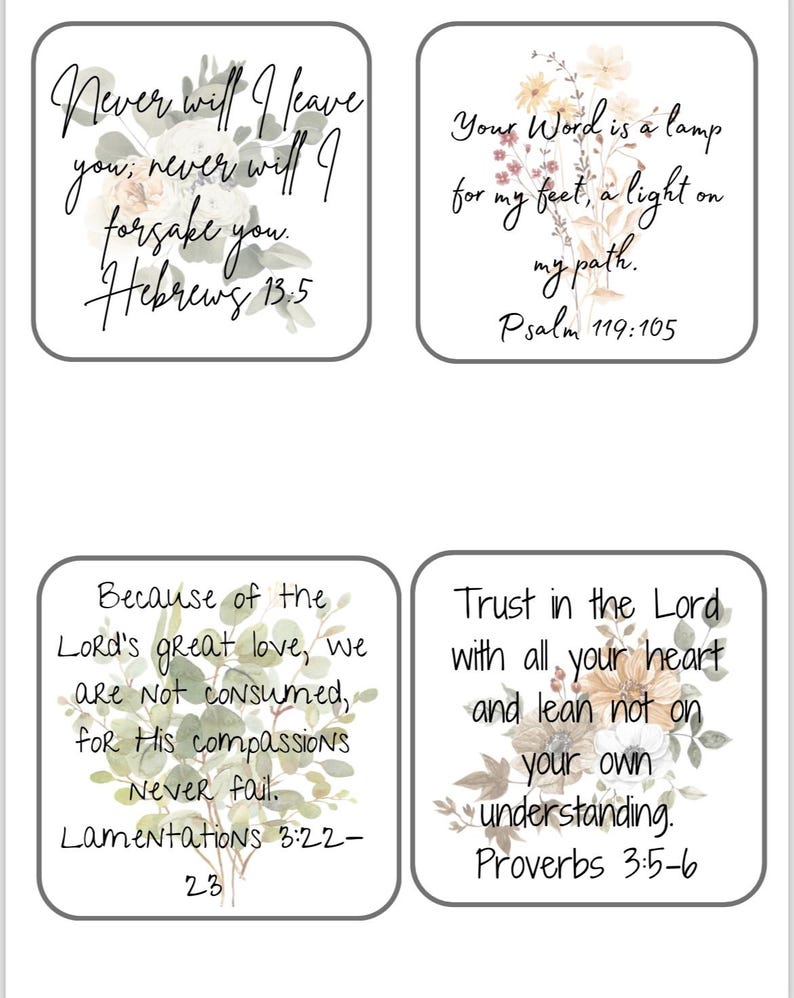 Never will I leave
you; never will I
forsake you.
Hebrews 13:5
Your Word is a lamp
for my feet, a light on
my path.
Psalm 119:105
Because of the
Lord's great love, we
are not consumed,
for His compassions
never fail.
Lamentations 3:22-
23
Trust in the Lord
with all your heart
and lean not on
your own
understanding.
Proverbs 3:5-6